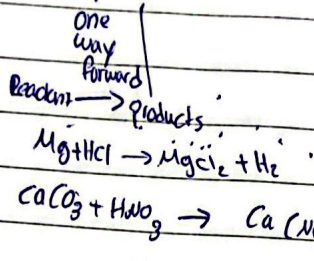 one
way
forward
Reactant → products
Mg+HCl → MgCl₂ + H₂
CaCO₃ + HNO₃ → Ca(N